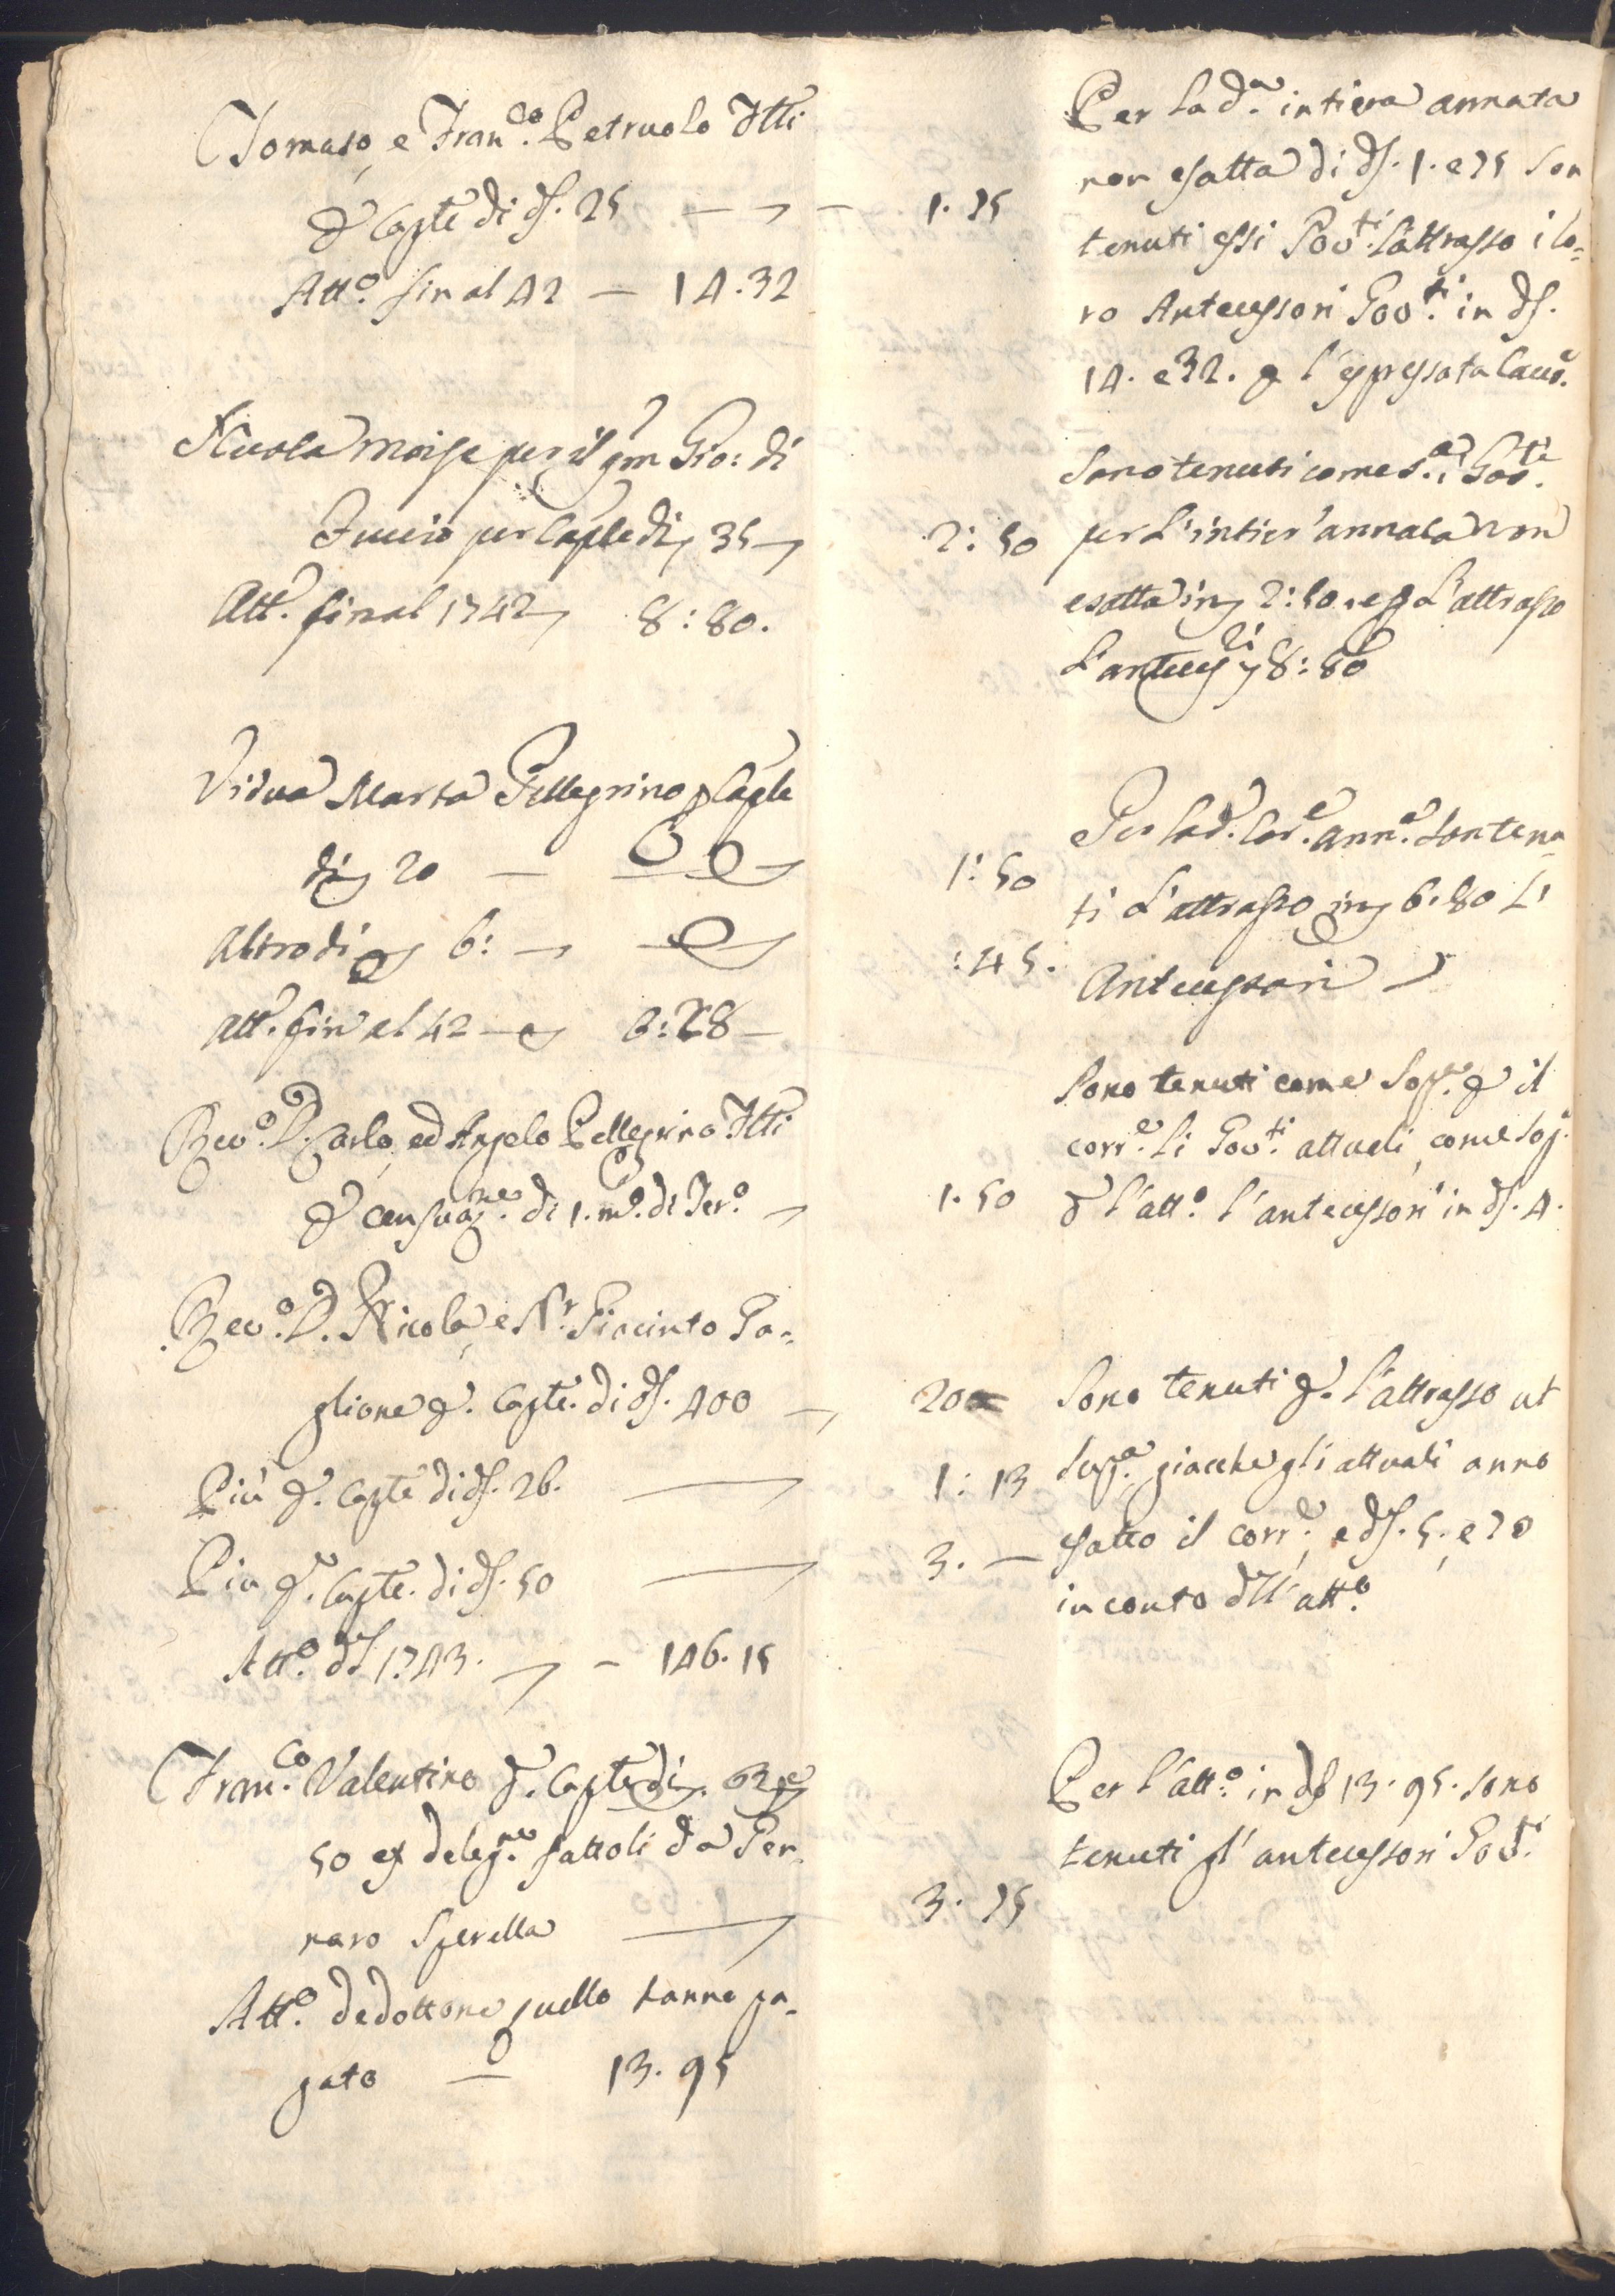 Tomaso, e Fran.co Petruolo Ftti
p Capte di d. 25 — 1.75
Atto. fin al 42 — 14.32
Per la d.a intiera annata
non esatta di d. 1. e 75 son
tenuti essi Gov.ti l'attrasso i lo-
ro Antecessori Gov.ti in d.
14. e 32. p l'espressata Caus.
Nicola Moise per il qm Gio: di
Iuccio per Caple di 35
Att.o fin al 1742 8:80.
2:50
Sono tenuti come s.a i Gov.ti
per l'intier' annata non
esatta in 2:50. e p l'attrasso
l'antecess.i 8:80
Vidua Marta Pellegrino p Caple
di 20 — 1:50
Altro di 6: — :45.
Att.o fin al 42 — 6:28 —
Per la d. Cor.e ann.a son tenu-
ti l'attrasso in 6.80 L'
Antecessori
Rev.o D. Carlo, ed Angelo Pellegrino Ftti
p censuaz.ne di 1. m.o di Ter.o 1.50
Sono tenuti come Sop.a p il
corr.e li Gov.ti attuali, come sop.a
p l'att.o l'antecessori in d. 4.
Rev.o D. Nicola, e Nr. Giacinto Pa-
glione p. Capte. di d. 400 — 20
Più p. Capte di d. 26. 1:13
Più p. Capte. di d. 50 3. —
Att.o d 1743. — 146.15
Sono tenuti p. l'attrasso ut
Sup.a giacche gli attuali anno
esatto il corr.e, e d. 5. e 70
in conto dll' att.o
Fran.co Valentino p. Capte di 62
50 ex deleg.ne fattoli da Gen-
naro Sperella 3.75
Att.o dedottone quello hanno pa-
gato — 13.95
Per l'att.o in d 13.95. sono
tenuti gl' antecessori Gov.ti